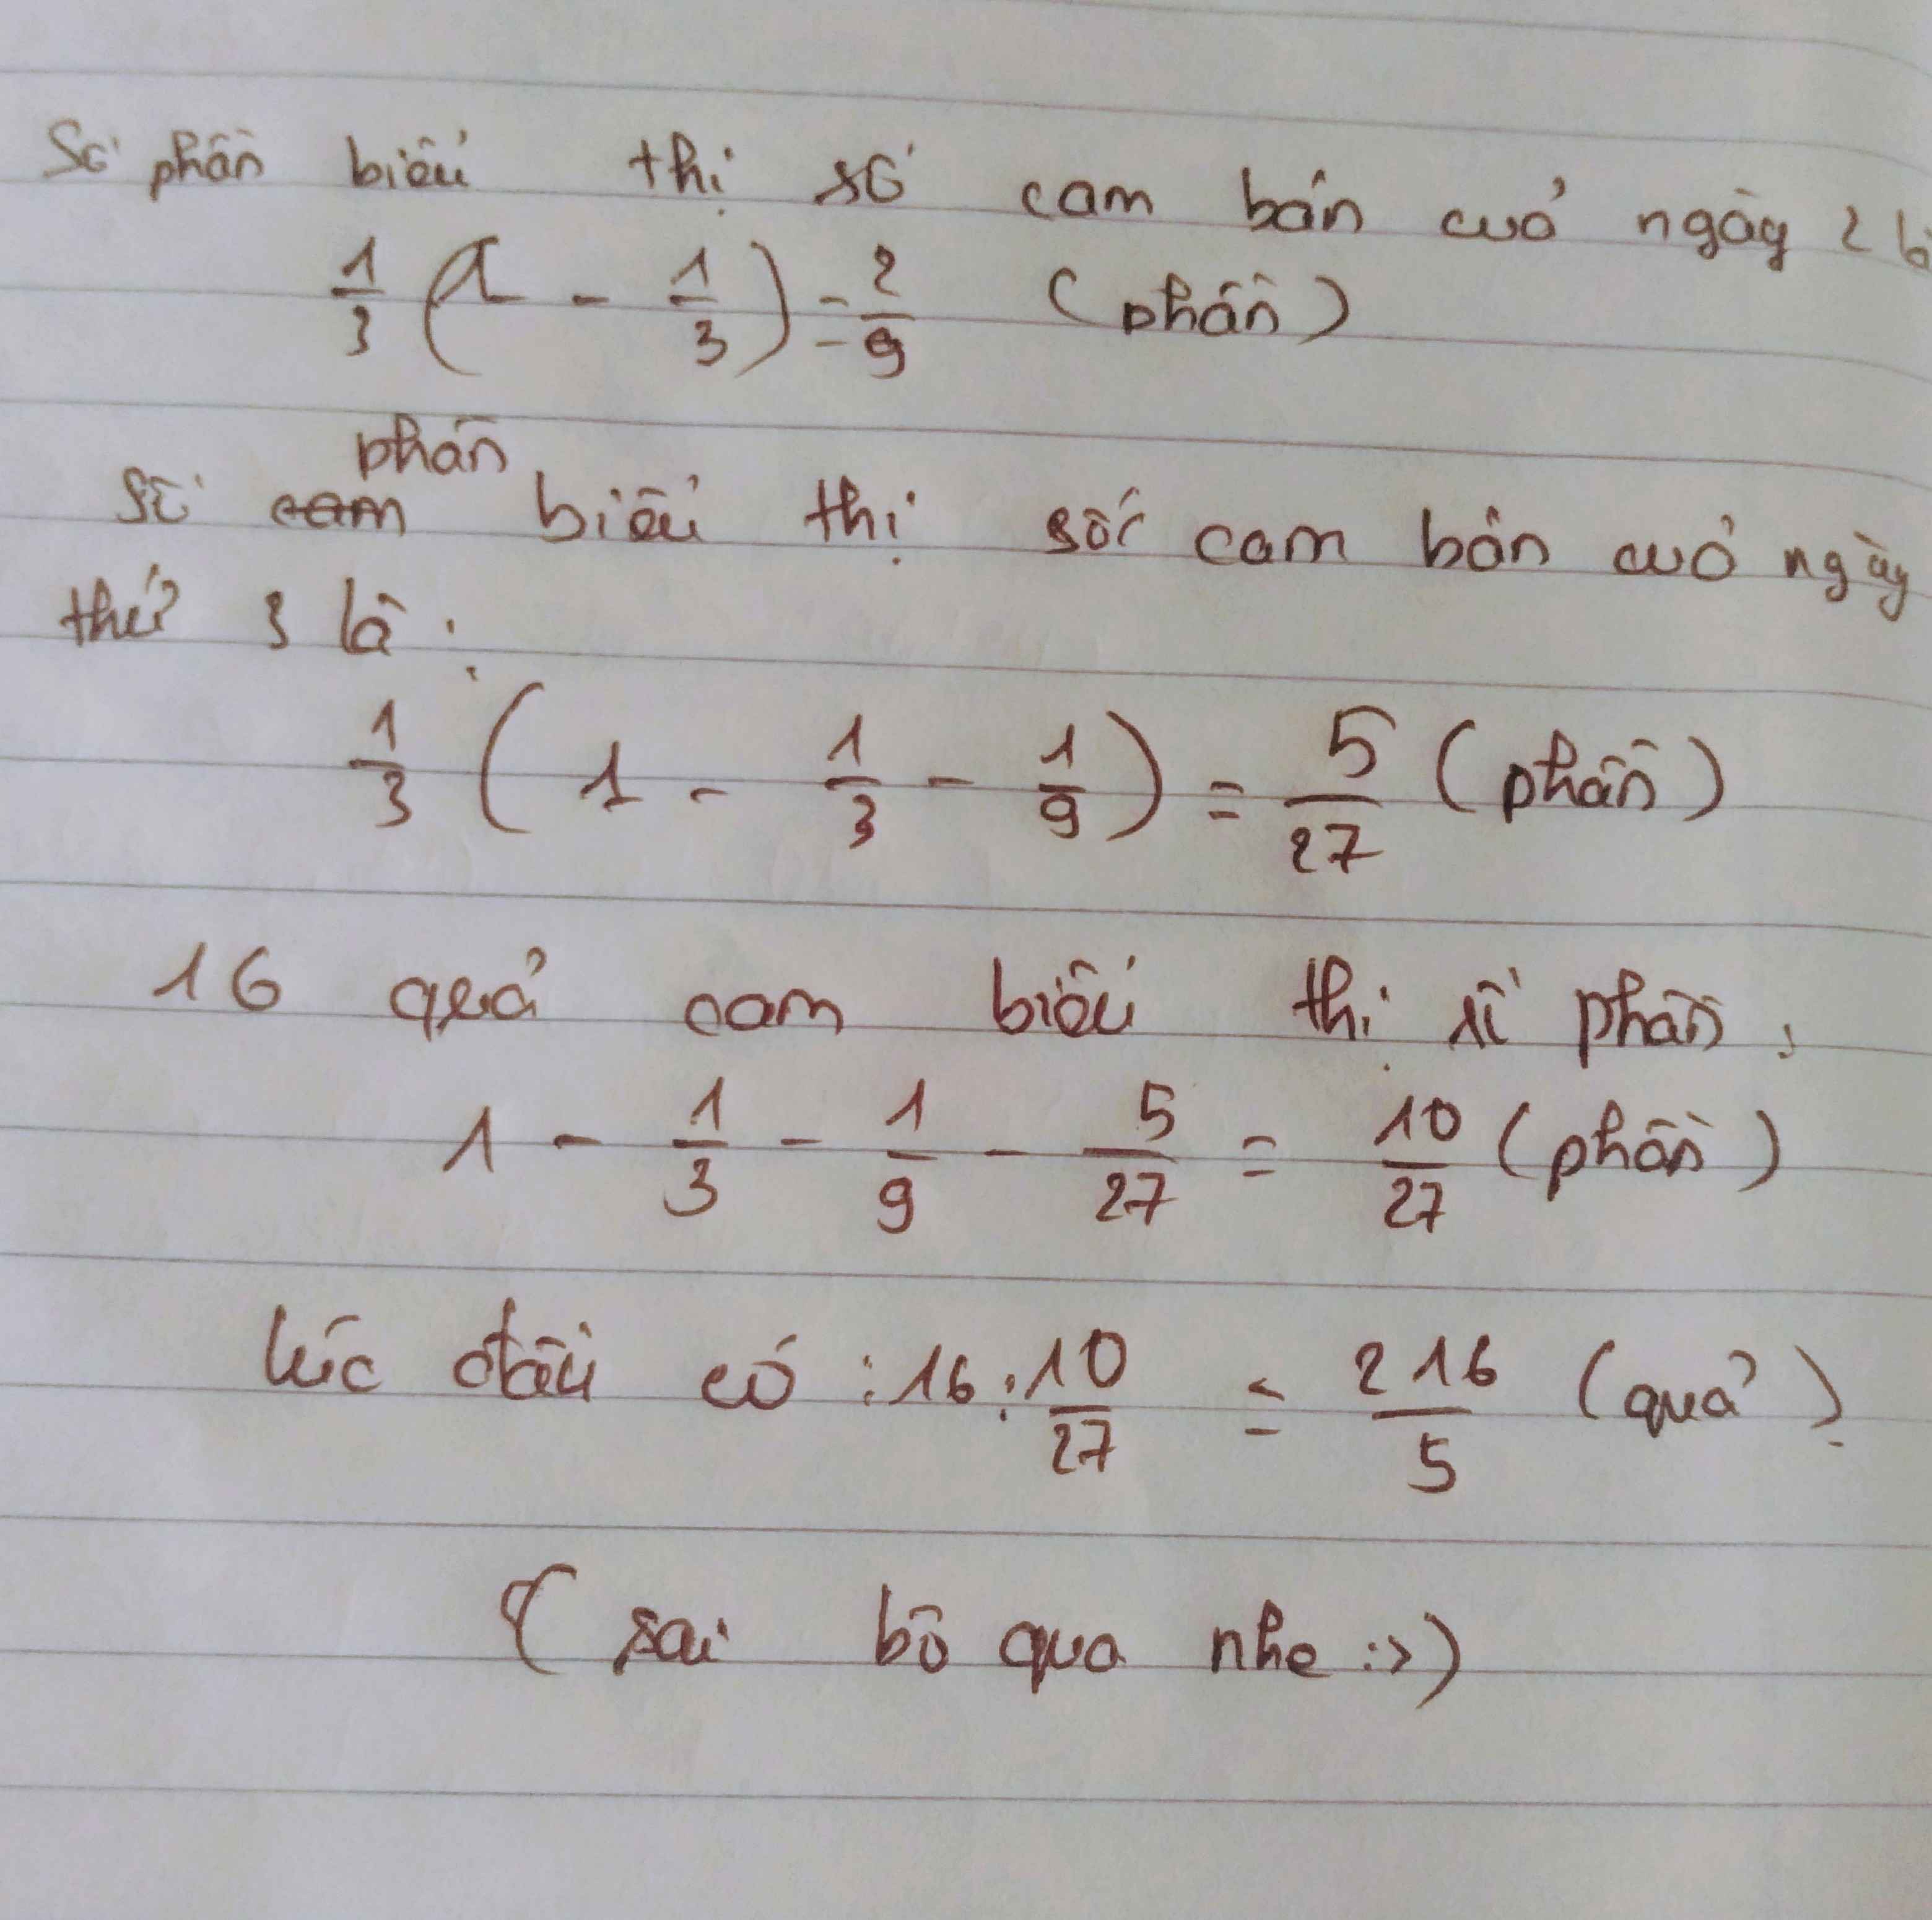 Số phần biểu thị số cam bán cuả ngày 2 là
1/3 (1 - 1/3) = 2/9 (phần)
phần
Số cam biểu thị số cam bán cuả ngày
thứ 3 là :
1/3 (1 - 1/3 - 1/9) = 5/27 (phần)
16 quả cam biểu thị số phần :
1 - 1/3 - 1/9 - 5/27 = 10/27 (phần)
lúc đầu có : 16 : 10/27 = 216/5 (quả)
( sai bỏ qua nhe :>)